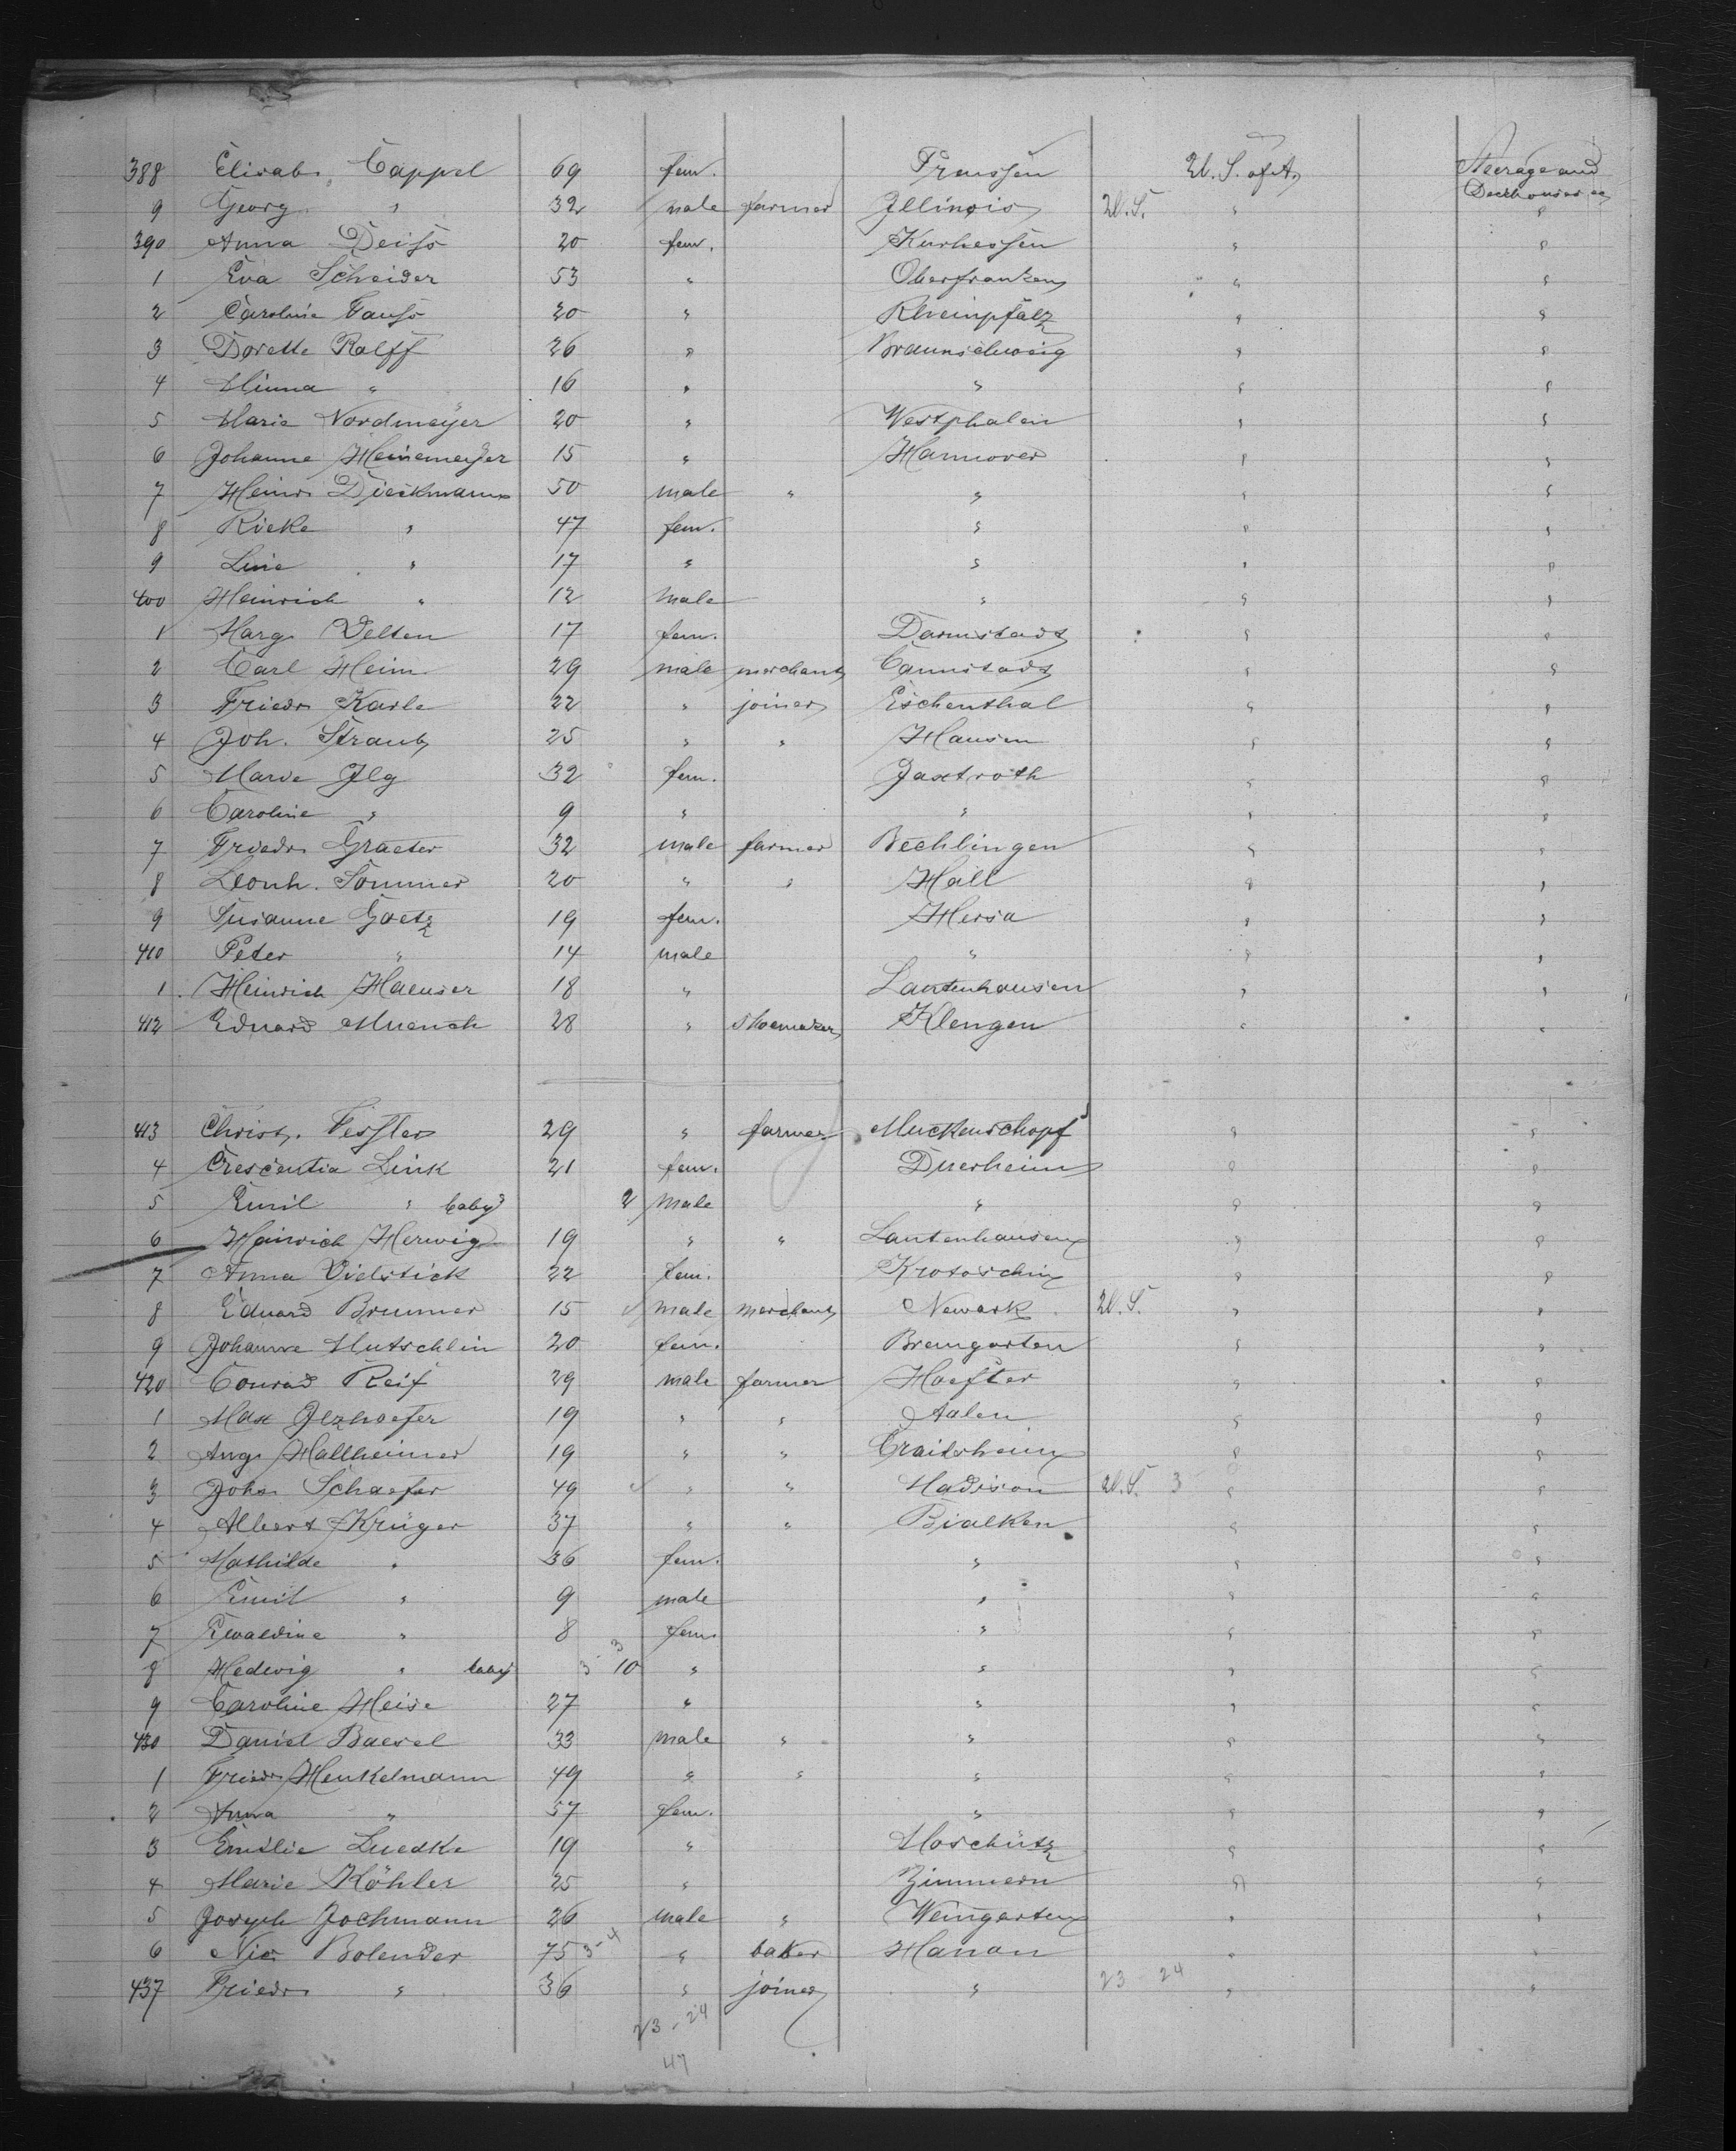 388 Elisab. Cappel 69 fem. Preussen U. S. of A. Steerage and
Deckhouses
9 Georg " 32 male farmer Illinois U. S. " "
390 Anna Deiss 20 fem. Kurhessen " "
1 Eva Scheider 53 " Oberfranken " "
2 Caroline Fauss 20 " Rheinpfalz " "
3 Dorette Rolff 26 " Braunschweig " "
4 Minna " 16 " " " "
5 Marie Nordmeyer 20 " Westphalen " "
6 Johanne Heinemeyer 15 " Hannover " "
7 Heinr. Dieckmann 50 male " " " "
8 Rieke " 47 fem. " " "
9 Line " 17 " " " "
400 Heinrich " 12 male " " "
1 Marg. Velten 17 fem. Darmstadt " "
2 Carl Heim 29 male merchant Cannstadt " "
3 Friedr. Karle 22 " joiner Eschenthal " "
4 Joh. Straub 25 " " Hausen " "
5 Marie Ilg 32 fem. Jaxtroth " "
6 Caroline " 9 " " " "
7 Friedr. Graeter 32 male farmer Bechlingen " "
8 Leonh. Sommer 20 " " Hall " "
9 Susanne Goetz 19 fem. Hersa " "
410 Peter " 14 male " " "
1 Heinrich Haeuser 18 " Lautenhausen " "
412 Eduard Muench 28 " shoemaker Klengen " "
413 Christ. Fessler 29 " farmer Muckenschopf " "
4 Crescentia Link 21 fem. Duerheim " "
5 Emil " baby 2 male " " "
6 Heinrich Herwig 19 " " Lautenhausen " "
7 Anna Vielstick 22 fem. Krotoschin " "
8 Eduard Brunner 15 male merchant Newark U. S. " "
9 Johanne Mutschlin 20 fem. Bremgarten " "
420 Conrad Reif 29 male farmer Hoefter " "
1 Max Ilzhoefer 19 " " Aalen " "
2 Aug. Hallheimer 19 " " Crailsheim " "
3 Johs. Schaefer 49 " " Madison U. S. 3 " "
4 Albert Krüger 37 " " Bialken " "
5 Mathilde " 36 fem. " " "
6 Emil " 9 male " " "
7 Ewaldine " 8 fem. " " "
8 Hedwig " baby 10 " " " "
9 Caroline Heise 27 " " " "
430 Daniel Baesel 33 male " " " "
1 Friedr. Henkelmann 49 " " " " "
2 Anna " 57 fem. " " "
3 Emilie Luedke 19 " Moschütz " "
4 Marie Köhler 25 " Zimmern " "
5 Joseph Jochmann 26 male " Weingarten " "
6 Nic. Bolender 75 3-4 " baker Hanau " "
437 Friedr. " 36 " joiner " 23 - 24 " "
23 - 24
47